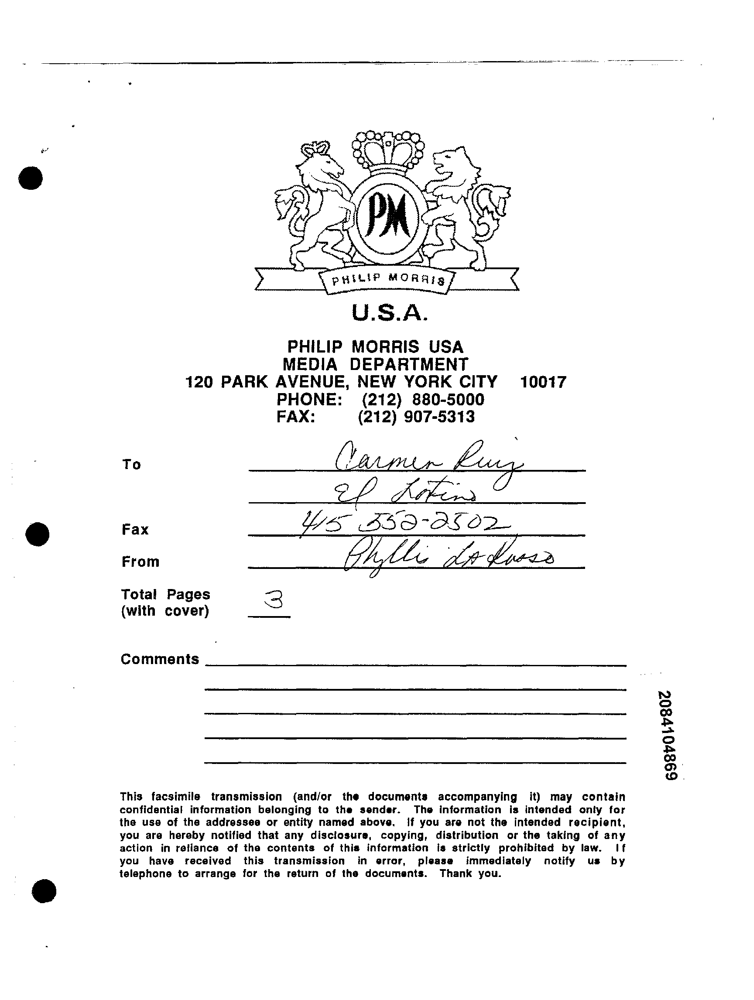 PM
PHILIP MORRIS
U.S.A.
PHILIP MORRIS USA
MEDIA DEPARTMENT
120 PARK AVENUE, NEW YORK CITY 10017
PHONE: (212) 880-5000
FAX: (212) 907-5313
To Carmen Ruiz
El Latino
Fax 415 552-2502
From Phyllis LoRusso
Total Pages
(with cover) 3
Comments
This facsimile transmission (and/or the documents accompanying it) may contain
confidential information belonging to the sender. The information is intended only for
the use of the addressee or entity named above. If you are not the intended recipient,
you are hereby notified that any disclosure, copying, distribution or the taking of any
action in reliance of the contents of this information is strictly prohibited by law. If
you have received this transmission in error, please immediately notify us by
telephone to arrange for the return of the documents. Thank you.
2084104869